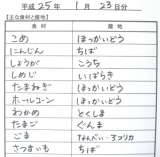 平成 25年 1月 23日分
【主な食材と産地】
食材 産地
こめ ほっかいどう
にんじん ちば
しょうが こうち
しめじ いばらき
たまねぎ ほっかいどう
ホールコーン ほっかいどう
わかめ とくしま
たまご ぐんま
ごま なんべい・アフリカ
さつまいも ちば